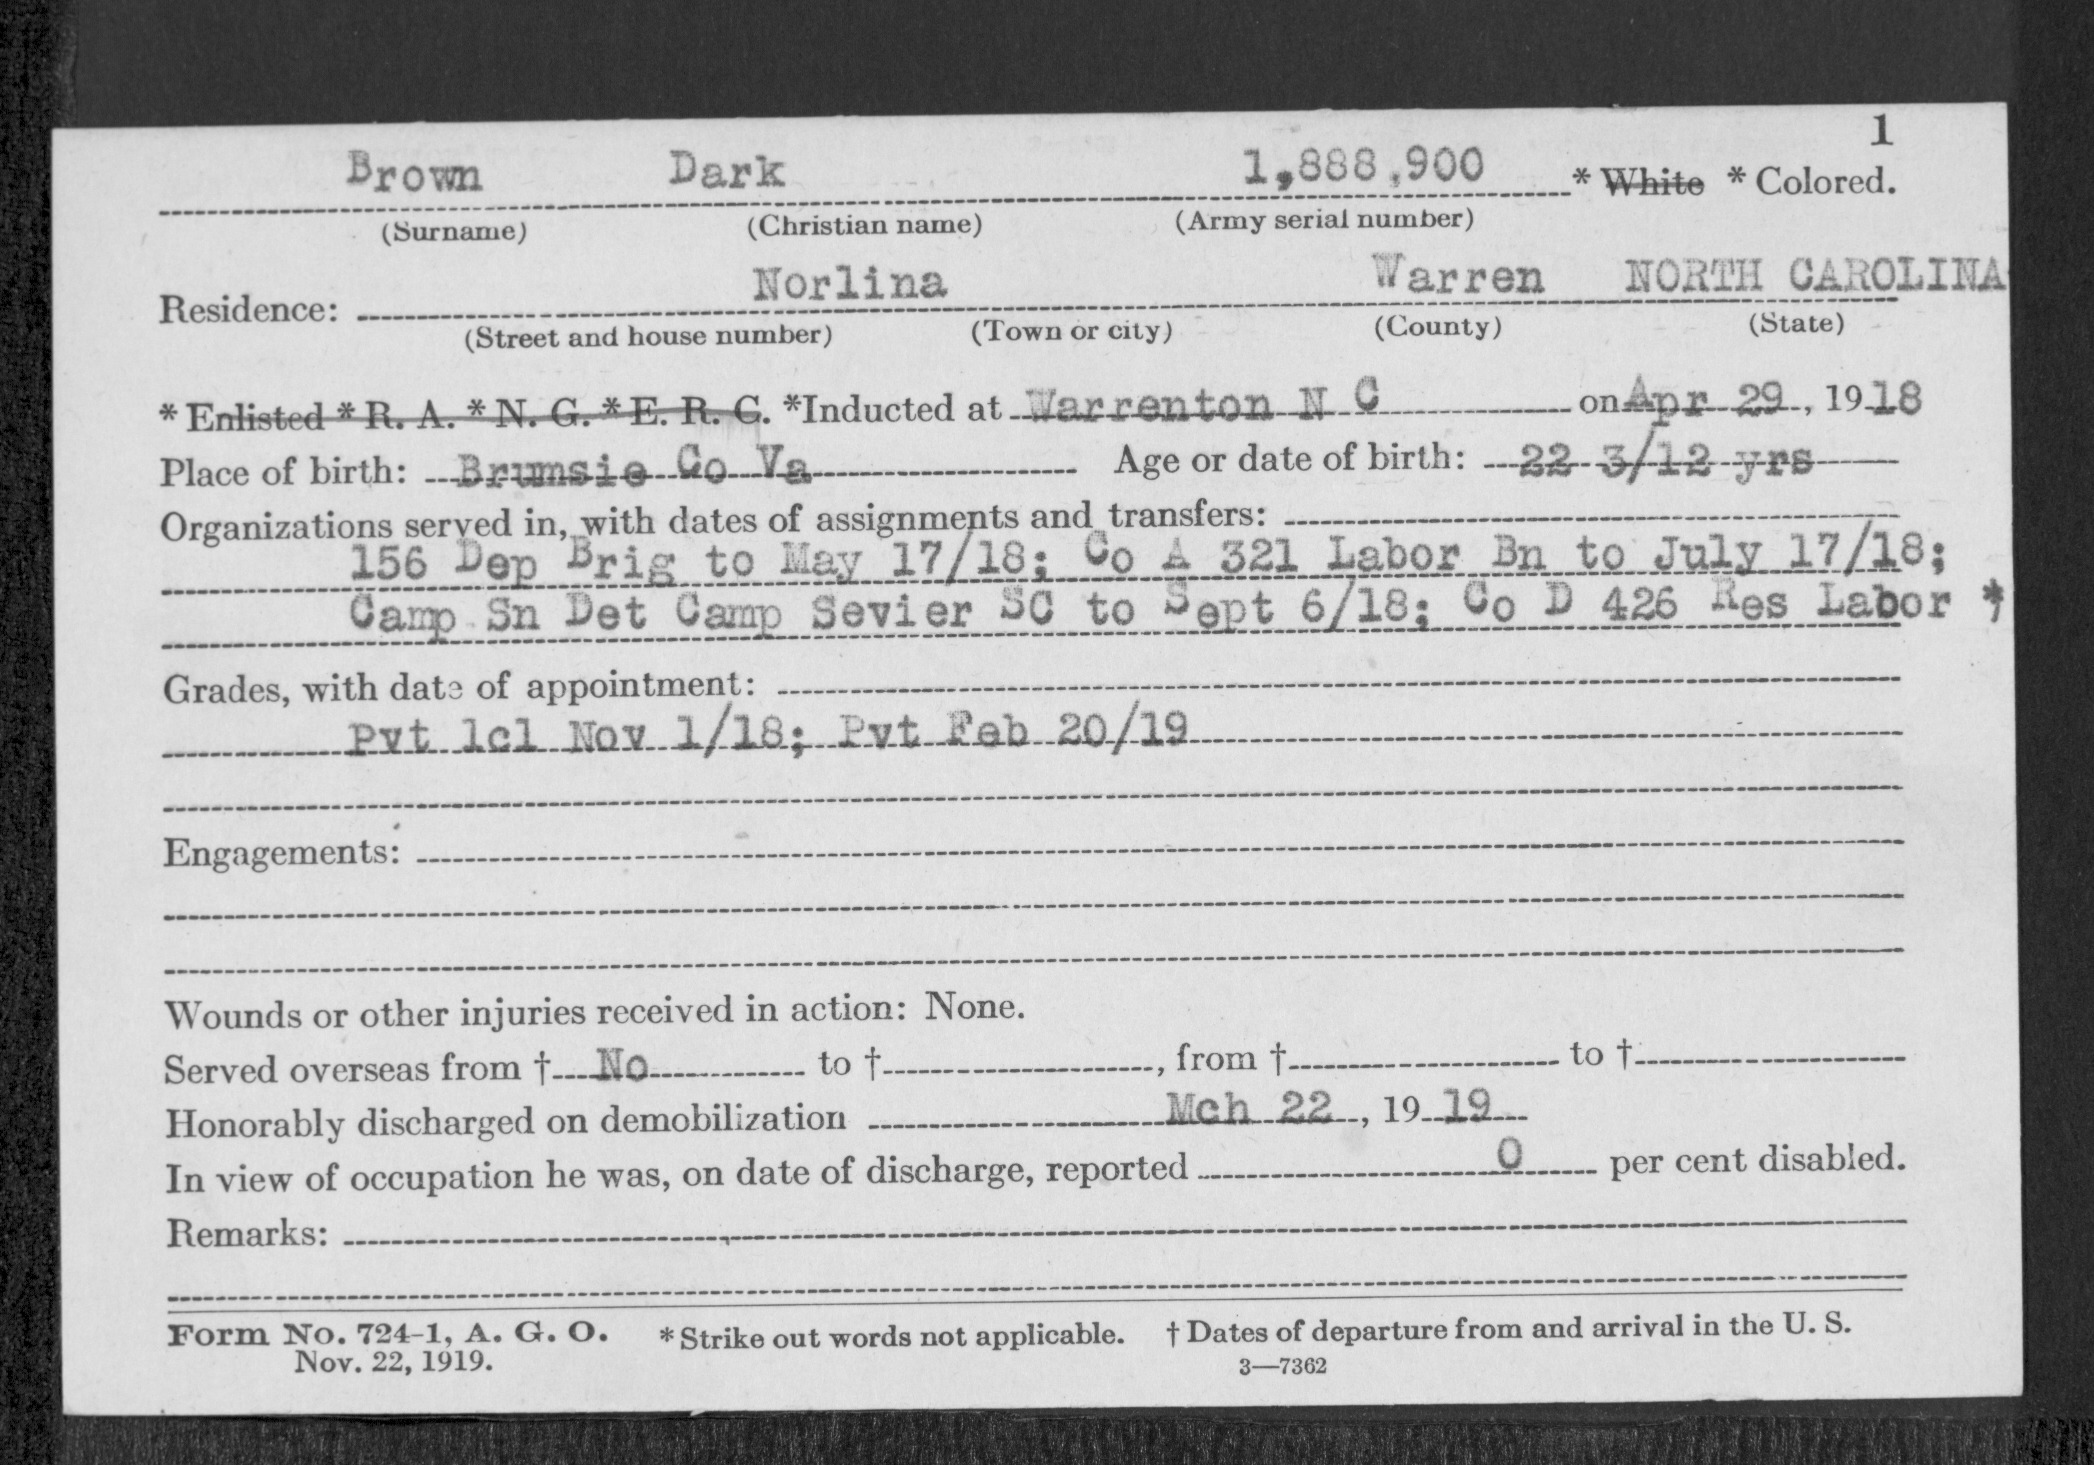 1
Brown Dark 1,888,900 * White * Colored.
(Surname) (Christian name) (Army serial number)
Residence: Norlina Warren NORTH CAROLINA
(Street and house number) (Town or city) (County) (State)
* Enlisted * R. A. * N. G. * E. R. C. *Inducted at Warrenton N C on Apr 29, 1918
Place of birth: Brumsie Co Va Age or date of birth: 22 3/12 yrs
Organizations served in, with dates of assignments and transfers:
156 Dep Brig to May 17/18; Co A 321 Labor Bn to July 17/18;
Camp Sn Det Camp Sevier SC to Sept 6/18; Co D 426 Res Labor *
Grades, with date of appointment:
Pvt 1cl Nov 1/18; Pvt Feb 20/19
Engagements:
Wounds or other injuries received in action: None.
Served overseas from † No to †, from † to †
Honorably discharged on demobilization Mch 22, 1919
In view of occupation he was, on date of discharge, reported 0 per cent disabled.
Remarks:
Form No. 724-1, A. G. O. * Strike out words not applicable. † Dates of departure from and arrival in the U. S.
Nov. 22, 1919. 3—7362